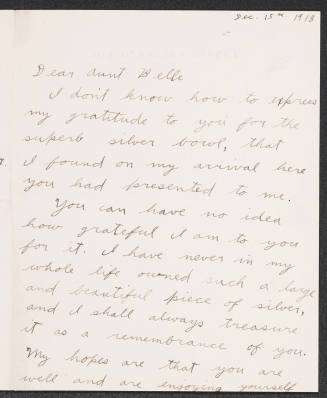 Dec. 15th 1918
Dear Aunt Belle
I don't know how to express
my gratitude to you for the
superb silver bowl, that
I found on my arrival here
you had presented to me.
You can have no idea
how grateful I am to you
for it. I have never in my
whole life owned such a large
and beautiful piece of silver,
and I shall always treasure
it as a remembrance of you.
My hopes are that you are
well and are enjoying yourself